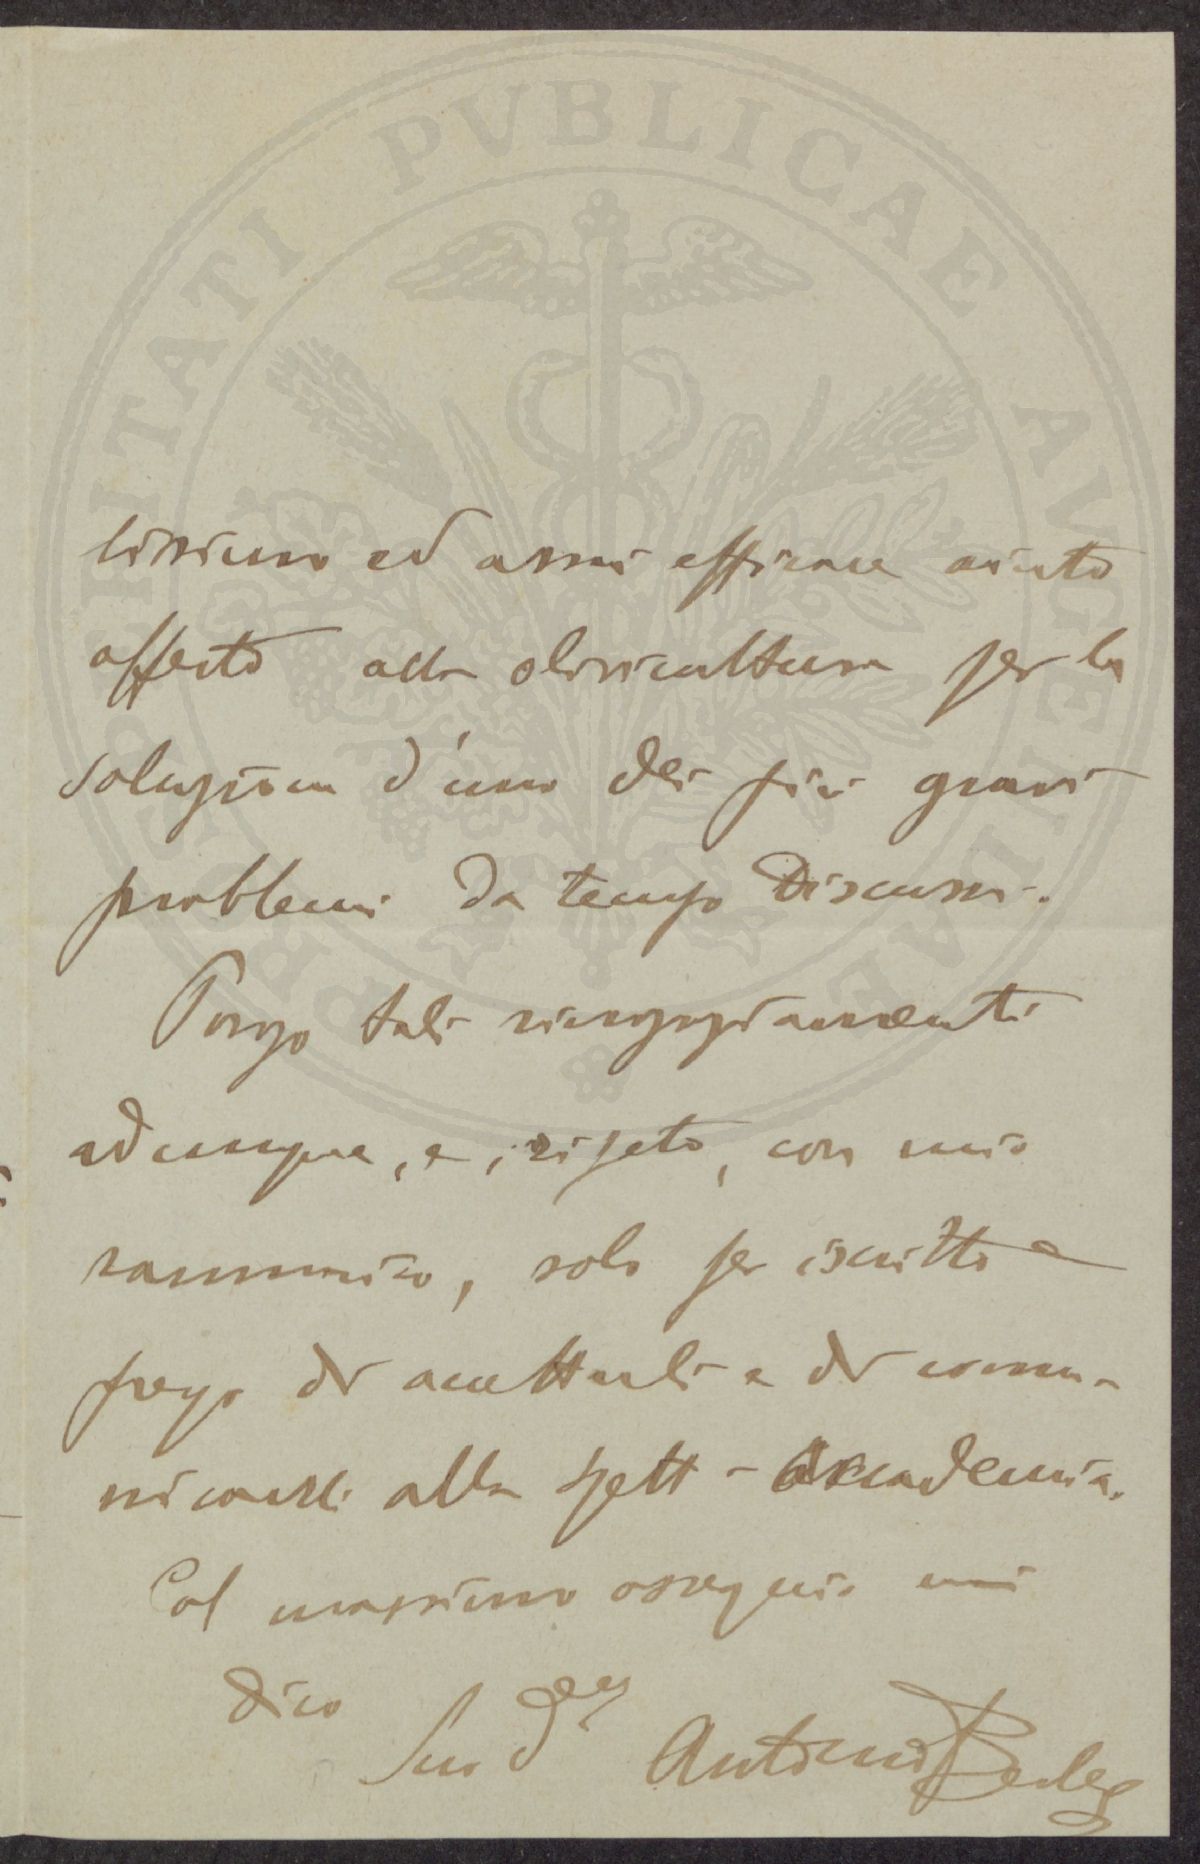 lissimo ed assai efficace aiuto
offerto alla olivicultura per la
soluzione d'uno dei più gravi
problemi da tempo discussi.
Porgo tali ringraziamenti
adunque, e, ripeto, con mio
rammarico, solo per iscritto e
prego di accettarli e di comu-
nicarli alla spett- Accademia.
Col massimo ossequio mi
dico
Suo dev
Antonio Berlese
PROSPERITATI PVBLICAE AVGENDAE